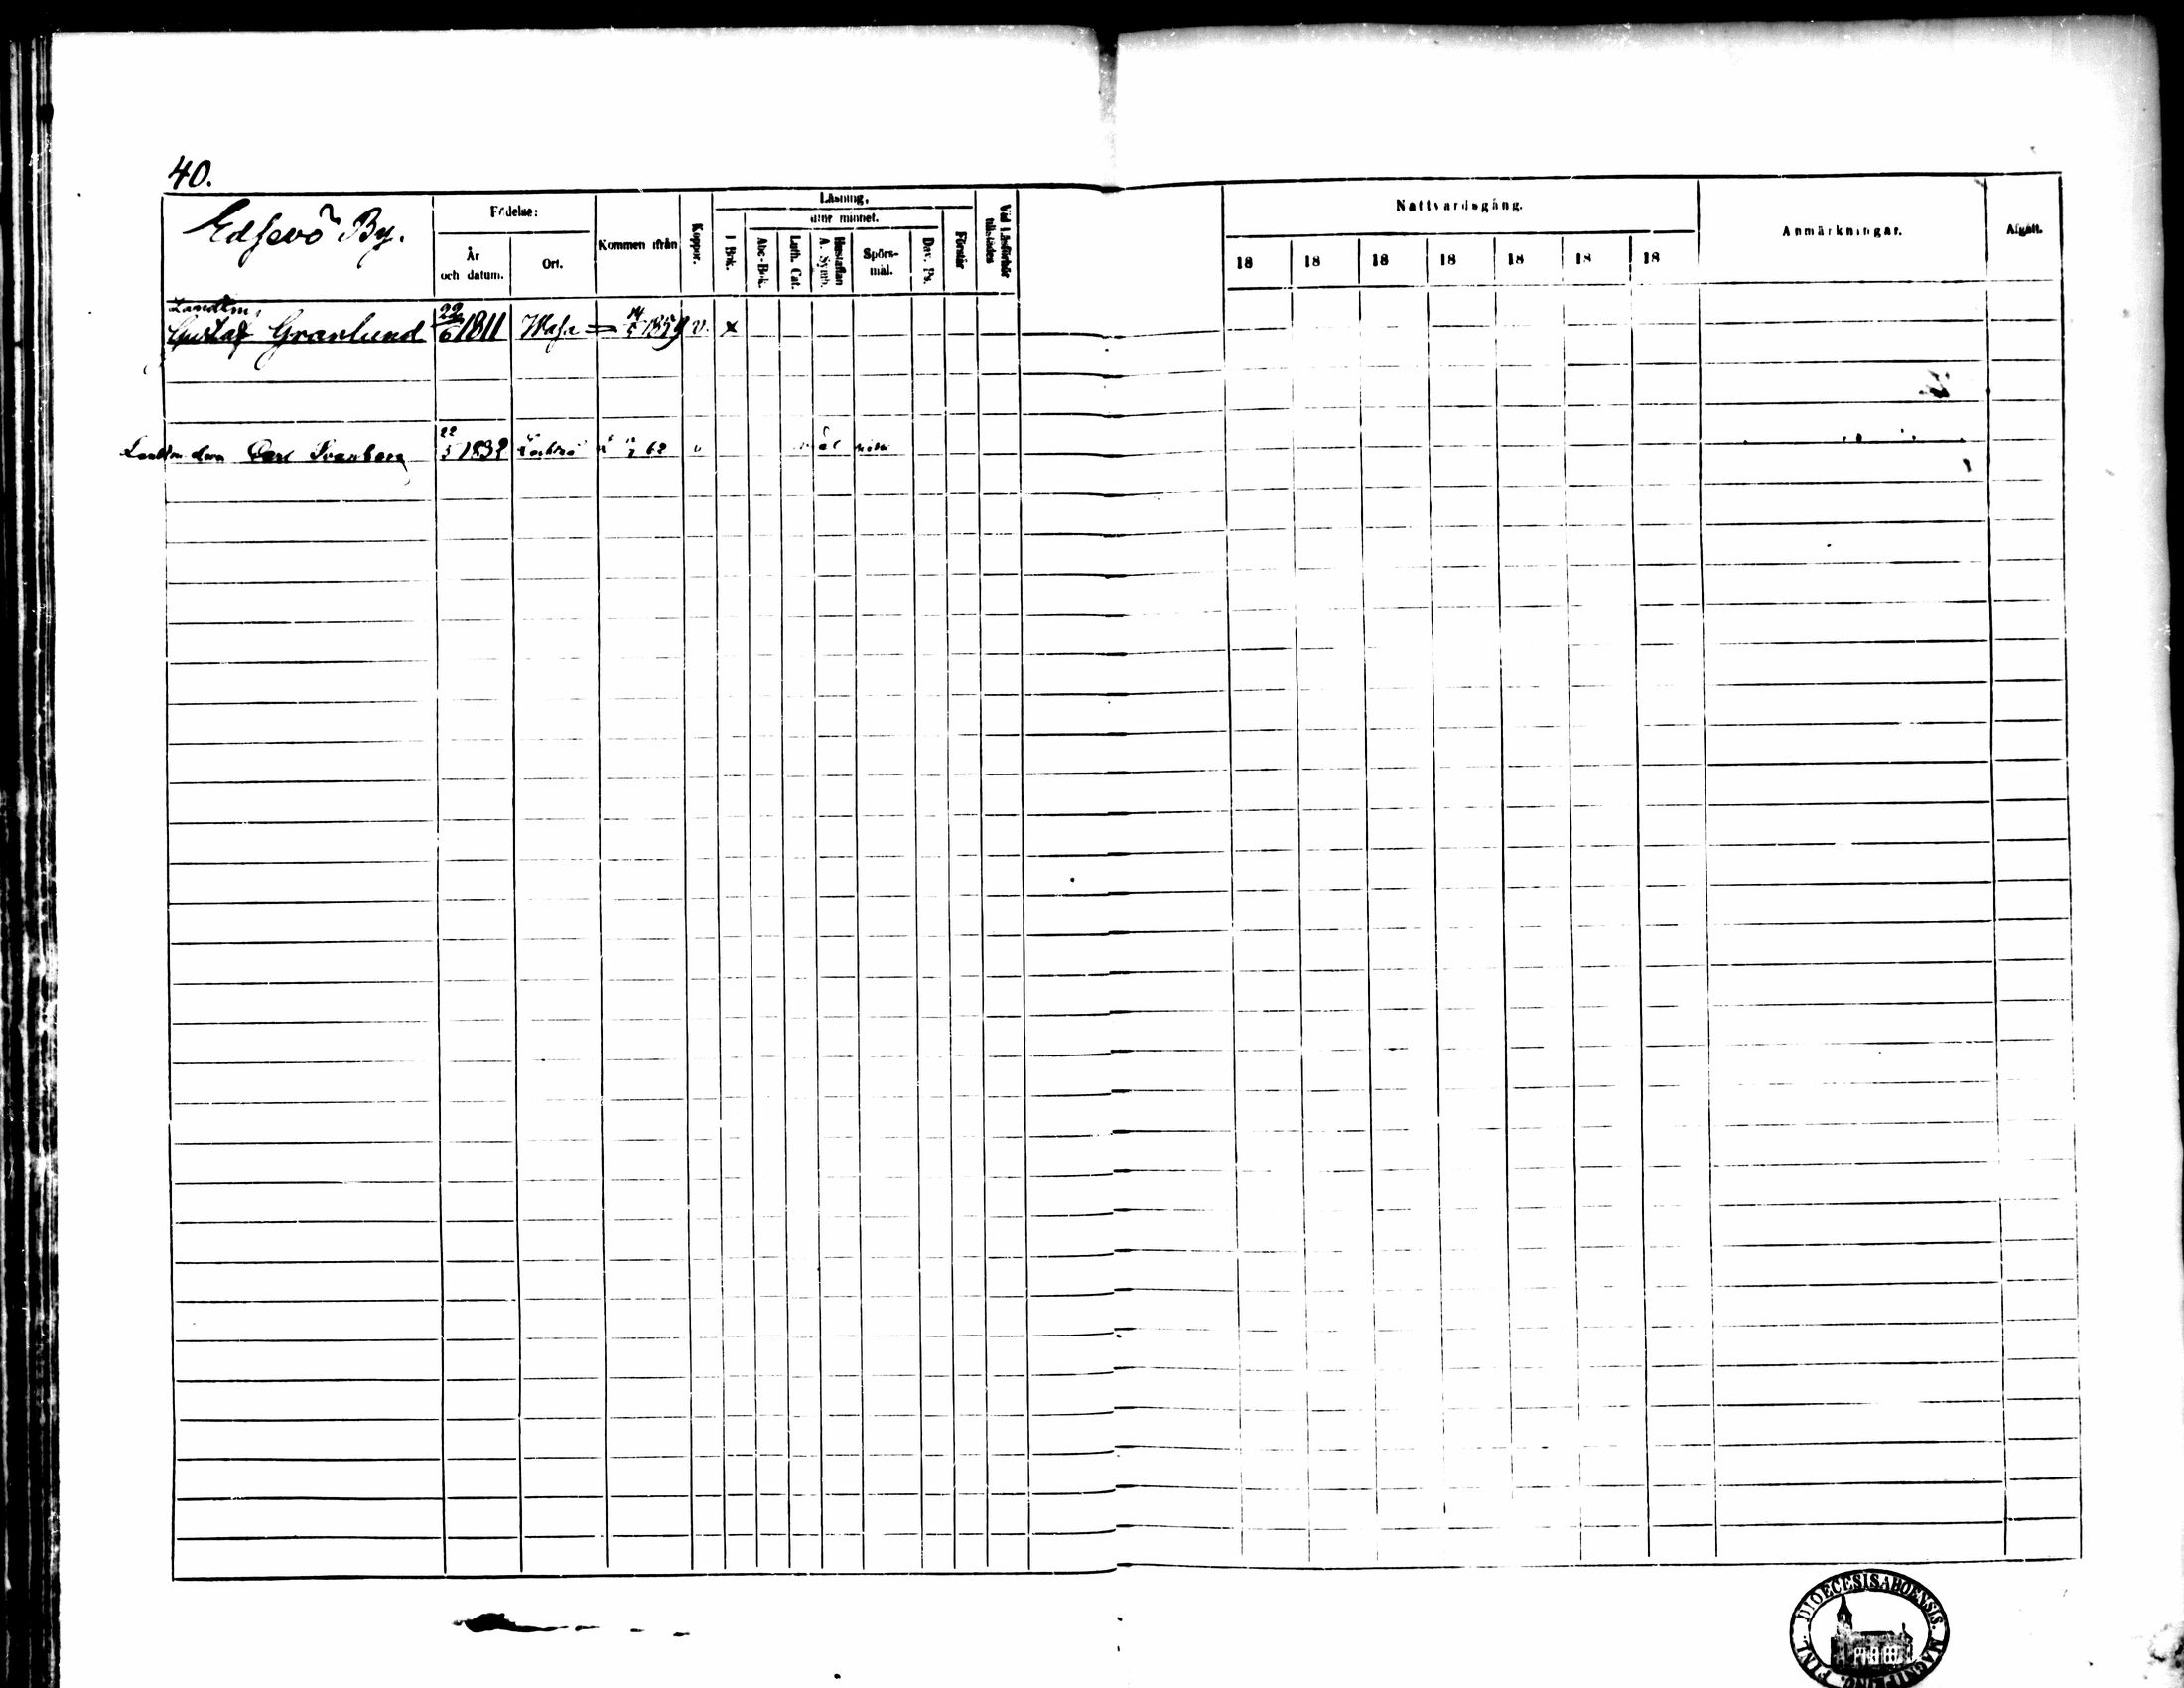 40.
Edsevö By.
Födelse:
År och datum.
Ort.
Kommen ifrån
Koppor.
Läsning,
utur minnet.
I Bok.
Abc-Bok.
Luth. Cat.
Hustaflan A. Symb.
Spörs-mål.
Dav. Ps.
Förstår
Vid Läsförhör tillstädes
Nattvardsgång.
18 18 18 18 18 18 18
Anmärkningar.
Afgått.
Landtm.
Gustaf Granlund 22/6 1811 Wasa 14/5 1859 v. x
Carl Svanberg 22/5 1832 62 v
DIOECESIS ABOENSIS. MAGNI PRINC. FINL.